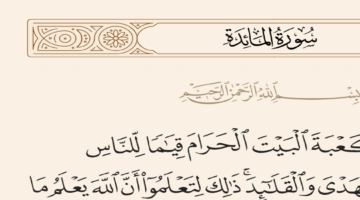 سُورَةُ المَائِدَةِ
ـمِ ٱللَّهِ ٱلرَّحْمَٰنِ ٱلرَّحِيمِ
ـكَعْبَةَ ٱلْبَيْتَ ٱلْحَرَامَ قِيَٰمًا لِّلنَّاسِ
ـهَدْىَ وَٱلْقَلَٰٓئِدَ ۚ ذَٰلِكَ لِتَعْلَمُوٓا۟ أَنَّ ٱللَّهَ يَعْلَمُ مَا